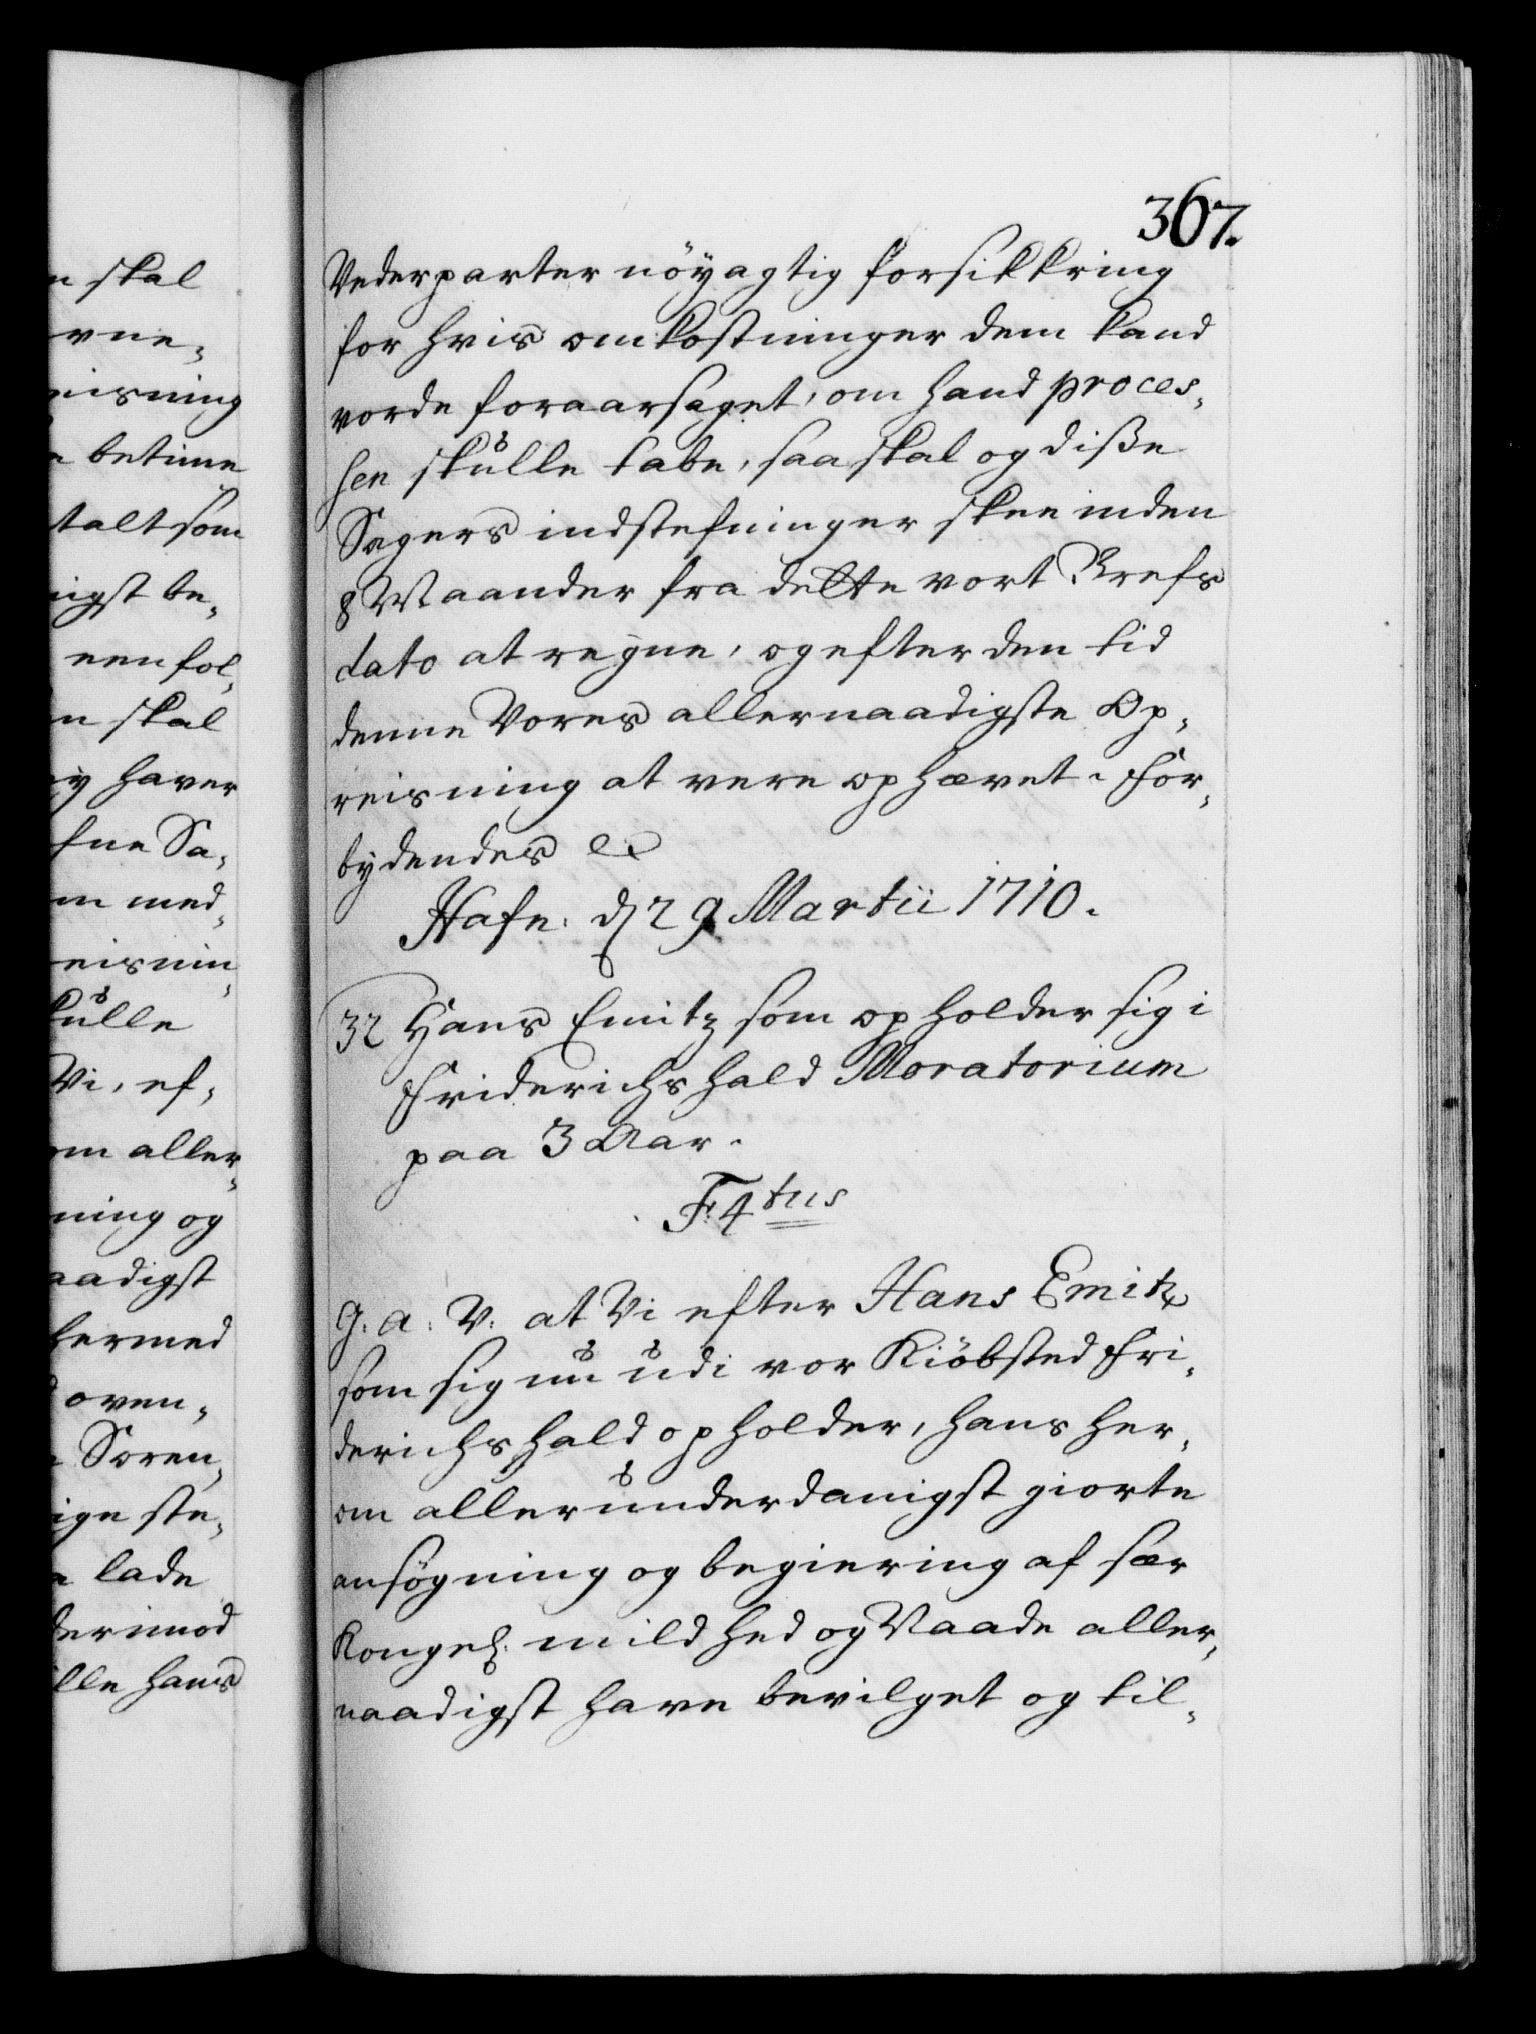 n skal
rne„
eisning
e betime
talt som
nigst be„
een fol„
n skal
ey haver
fne Sa„
m med„
eisnin„
kulle
Vi, ef„
om aller„
ning og
aadigst
hermed
oven„
Soren„
ige ste„
lade
derimod
lle hans
367.
Vederparter nöyagtig forsikkring
for hvis omkostninger dem kand
vorde foraarsaget, om hand proces„
sen skulle tabe, saa skal og diße
Sagers indstefninger skee inden
8 Maaneder fra dette vort Brefs
dato at regne, og efter den tid
denne Vores allernaadigste Op„
reisning at vere ophævet. For„
bydendes etc
Hafn: d 29 Martii 1710.
32 Hans Emitz som opholder sig i
Friderichshald Moratorium
paa 3 Aar.
F: 4tus
G: A: V: at Vi efter Hans Emitz
som sig nu udi vor Kiöbsted Fri„
derichshald opholder, hans her„
om allerunderdanigst giorte
ansögning og begiering af sær
Kongel: mildhed og Naade aller„
naadigst have bevilget og til„